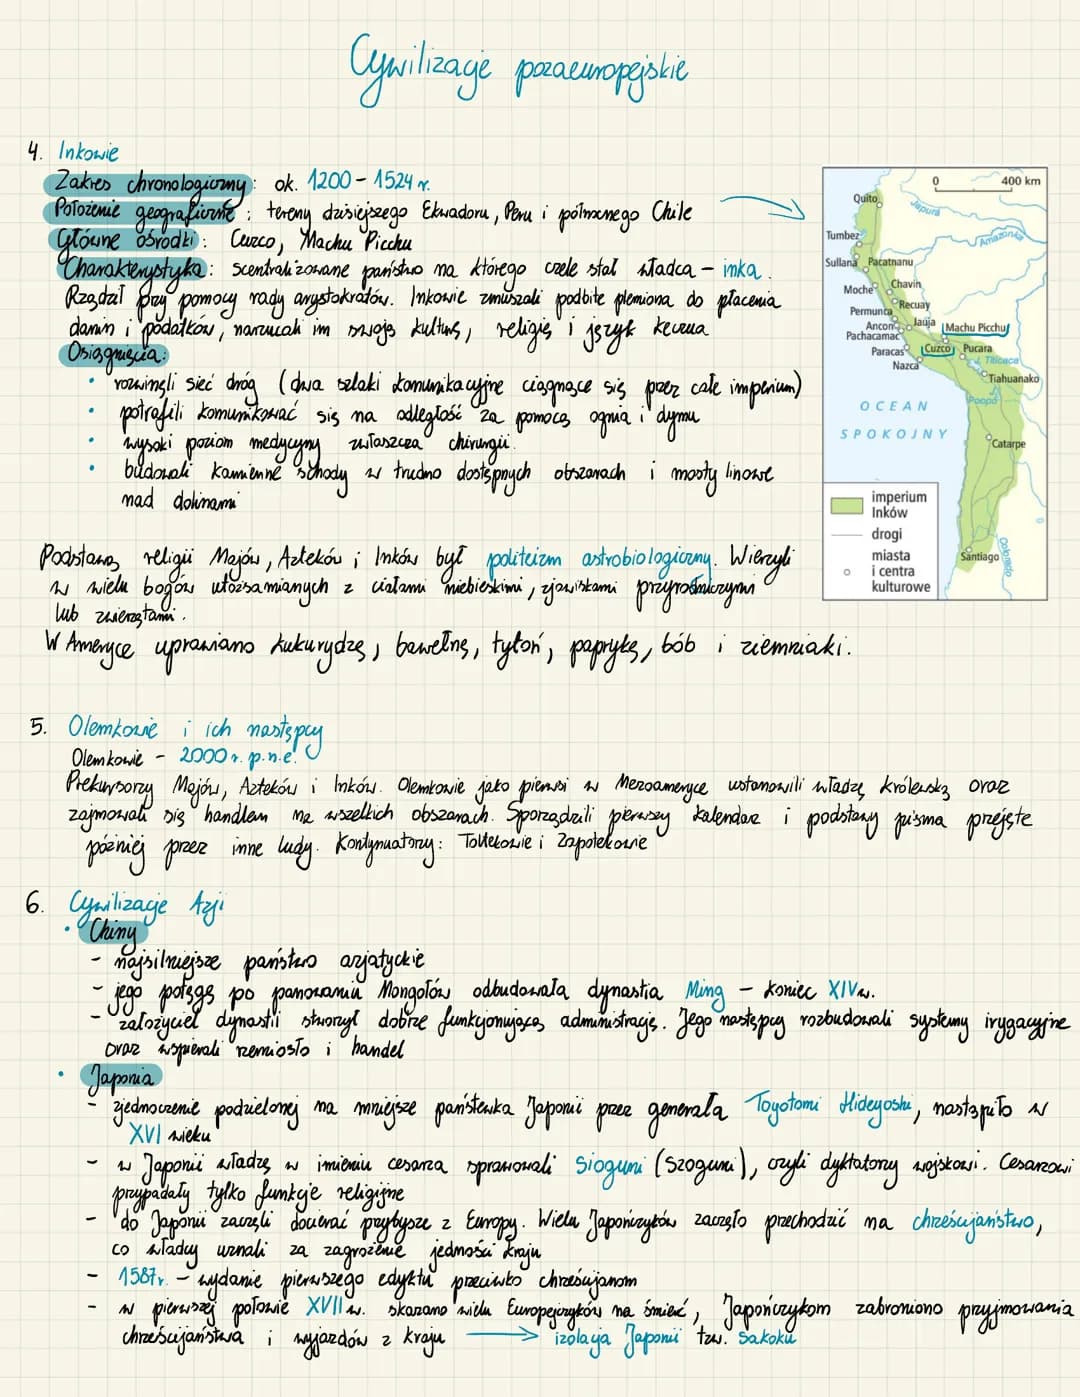 Cywilizacje pozaeuropejskie
4. Inkowie
Zakres chronologiczny: ok. 1200 - 1524 r.
Położenie geograficzne: tereny dzisiejszego Ekwadoru, Peru i północnego Chile
Główne ośrodki: Cuzco, Machu Picchu
Charakterystyka: scentralizowane państwo na którego czele stał władca - inka.
Rządził przy pomocy rady arystokratów. Inkowie zmuszali podbite plemiona do płacenia
danin i podatków, narzucali im swoją kulturę, religię i język keczua
Osiągnięcia:
• rozwinęli sieć dróg (dwa szlaki komunikacyjne ciągnące się przez całe imperium)
• potrafili komunikować się na odległość za pomocą ognia i dymu
• wysoki poziom medycyny zwłaszcza chirurgii
• budowali kamienne schody w trudno dostępnych obszarach i mosty linowe
nad dolinami
0 400 km
Quito
Japurá
Amazonka
Tumbez
Sullana
Pacatnanu
Moche
Chavin
Recuay
Permunca
Ancon
Jauja
Machu Picchu
Pachacamac
Paracas
Cuzco
Pucara
Nazca
Titicaca
Tiahuanako
Poopó
OCEAN
SPOKOJNY
Catarpe
Santiago
Colorado
imperium
Inków
drogi
miasta
i centra
kulturowe
Podstawą religii Majów, Azteków i Inków był politeizm astrobiologiczny. Wierzyli
w wielu bogów utożsamianych z ciałami niebieskimi, zjawiskami przyrodniczymi
lub zwierzętami.
W Ameryce uprawiano kukurydzę, bawełnę, tytoń, paprykę, bób i ziemniaki.
5. Olemkowie i ich następcy
Olemkowie - 2000 r. p.n.e.
Prekursorzy Majów, Azteków i Inków. Olemkowie jako pierwsi w Mezoameryce ustanowili władzę królewską oraz
zajmowali się handlem na wszelkich obszarach. Sporządzili pierwszy kalendarz i podstawy pisma przejęte
później przez inne ludy. Kontynuatorzy: Toltekowie i Zapotekowie
6. Cywilizacje Azji
• Chiny
- najsilniejsze państwo azjatyckie
- jego potęgę po panowaniu Mongołów odbudowała dynastia Ming - koniec XIV w.
- założyciel dynastii stworzył dobrze funkcjonującą administrację. Jego następcy rozbudowali systemy irygacyjne
oraz wspierali rzemiosło i handel
• Japonia
- zjednoczenie podzielonej na mniejsze państewka Japonii przez generała Toyotomi Hideyoshi, nastąpiło w
XVI wieku
- w Japonii władzę w imieniu cesarza sprawowali sioguni (szoguni), czyli dyktatorzy wojskowi. Cesarzowi
przypadały tylko funkcje religijne
- do Japonii zaczęli docierać przybysze z Europy. Wielu Japończyków zaczęło przechodzić na chrześcijaństwo,
co władcy uznali za zagrożenie jedności kraju
- 1587 r. - wydanie pierwszego edyktu przeciwko chrześcijanom
- w pierwszej połowie XVII w. skazano wielu Europejczyków na śmierć, Japończykom zabroniono przyjmowania
chrześcijaństwa i wyjazdów z kraju → izolacja Japonii tzw. Sakoku